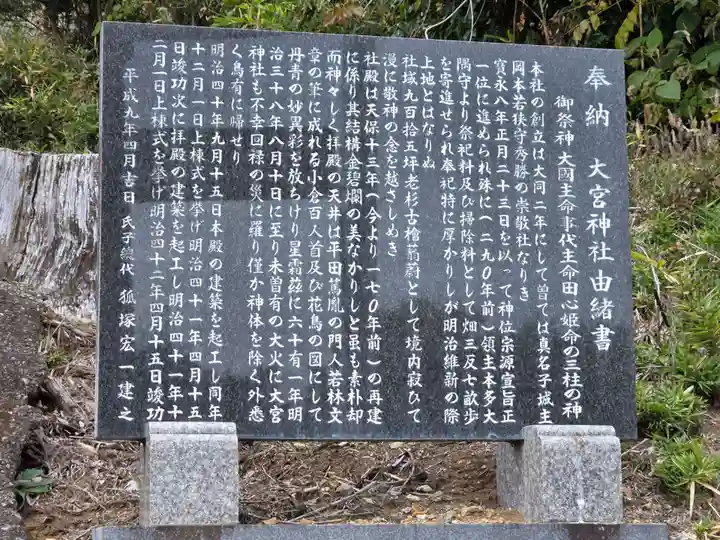 奉納 大宮神社由緒書
御祭神 大國主命事代主命田心姫命の三柱の神
本社の創立は大同二年にして曽ては真名子城主
岡本若狭守秀勝の崇敬社なりき
寳永八年正月二十三日を以って神位宗源宣旨正
一位に進められ殊に(二九〇年前)領主本多大
隅守より祭祀料及び掃除料として畑三反七畝歩
を寄進せられ奉祀特に厚かりしが明治維新の際
上地とはなりぬ
社域九百拾五坪老杉古檜蓊蔚として境内寂ひて
漫に敬神の念を越さしめき
社殿は天保十三年(今より一七〇年前)の再建
に係り其結構金碧爛の美なかりしと虽も素朴却
而神々しく拝殿の天井は平田篤胤の門人若林文
章の筆に成れる小倉百人首及び花鳥の図にして
丹青の妙異彩を放ちけり星霜茲に六十有一年明
治三十八年八月十日に至り未曽有の大火に大宮
神社も不幸回禄の災に羅り僅か神体を除く外悉
く烏有に帰せり
明治四十年九月十五日本殿の建築を起工し同年
十二月一日上棟式を挙げ明治四十一年四月十五
日竣功次に拝殿の建築を起工し明治四十一年十
二月一日上棟式を挙げ明治四十二年四月十五日竣功
平成九年四月吉日 氏子總代 狐塚宏一建之